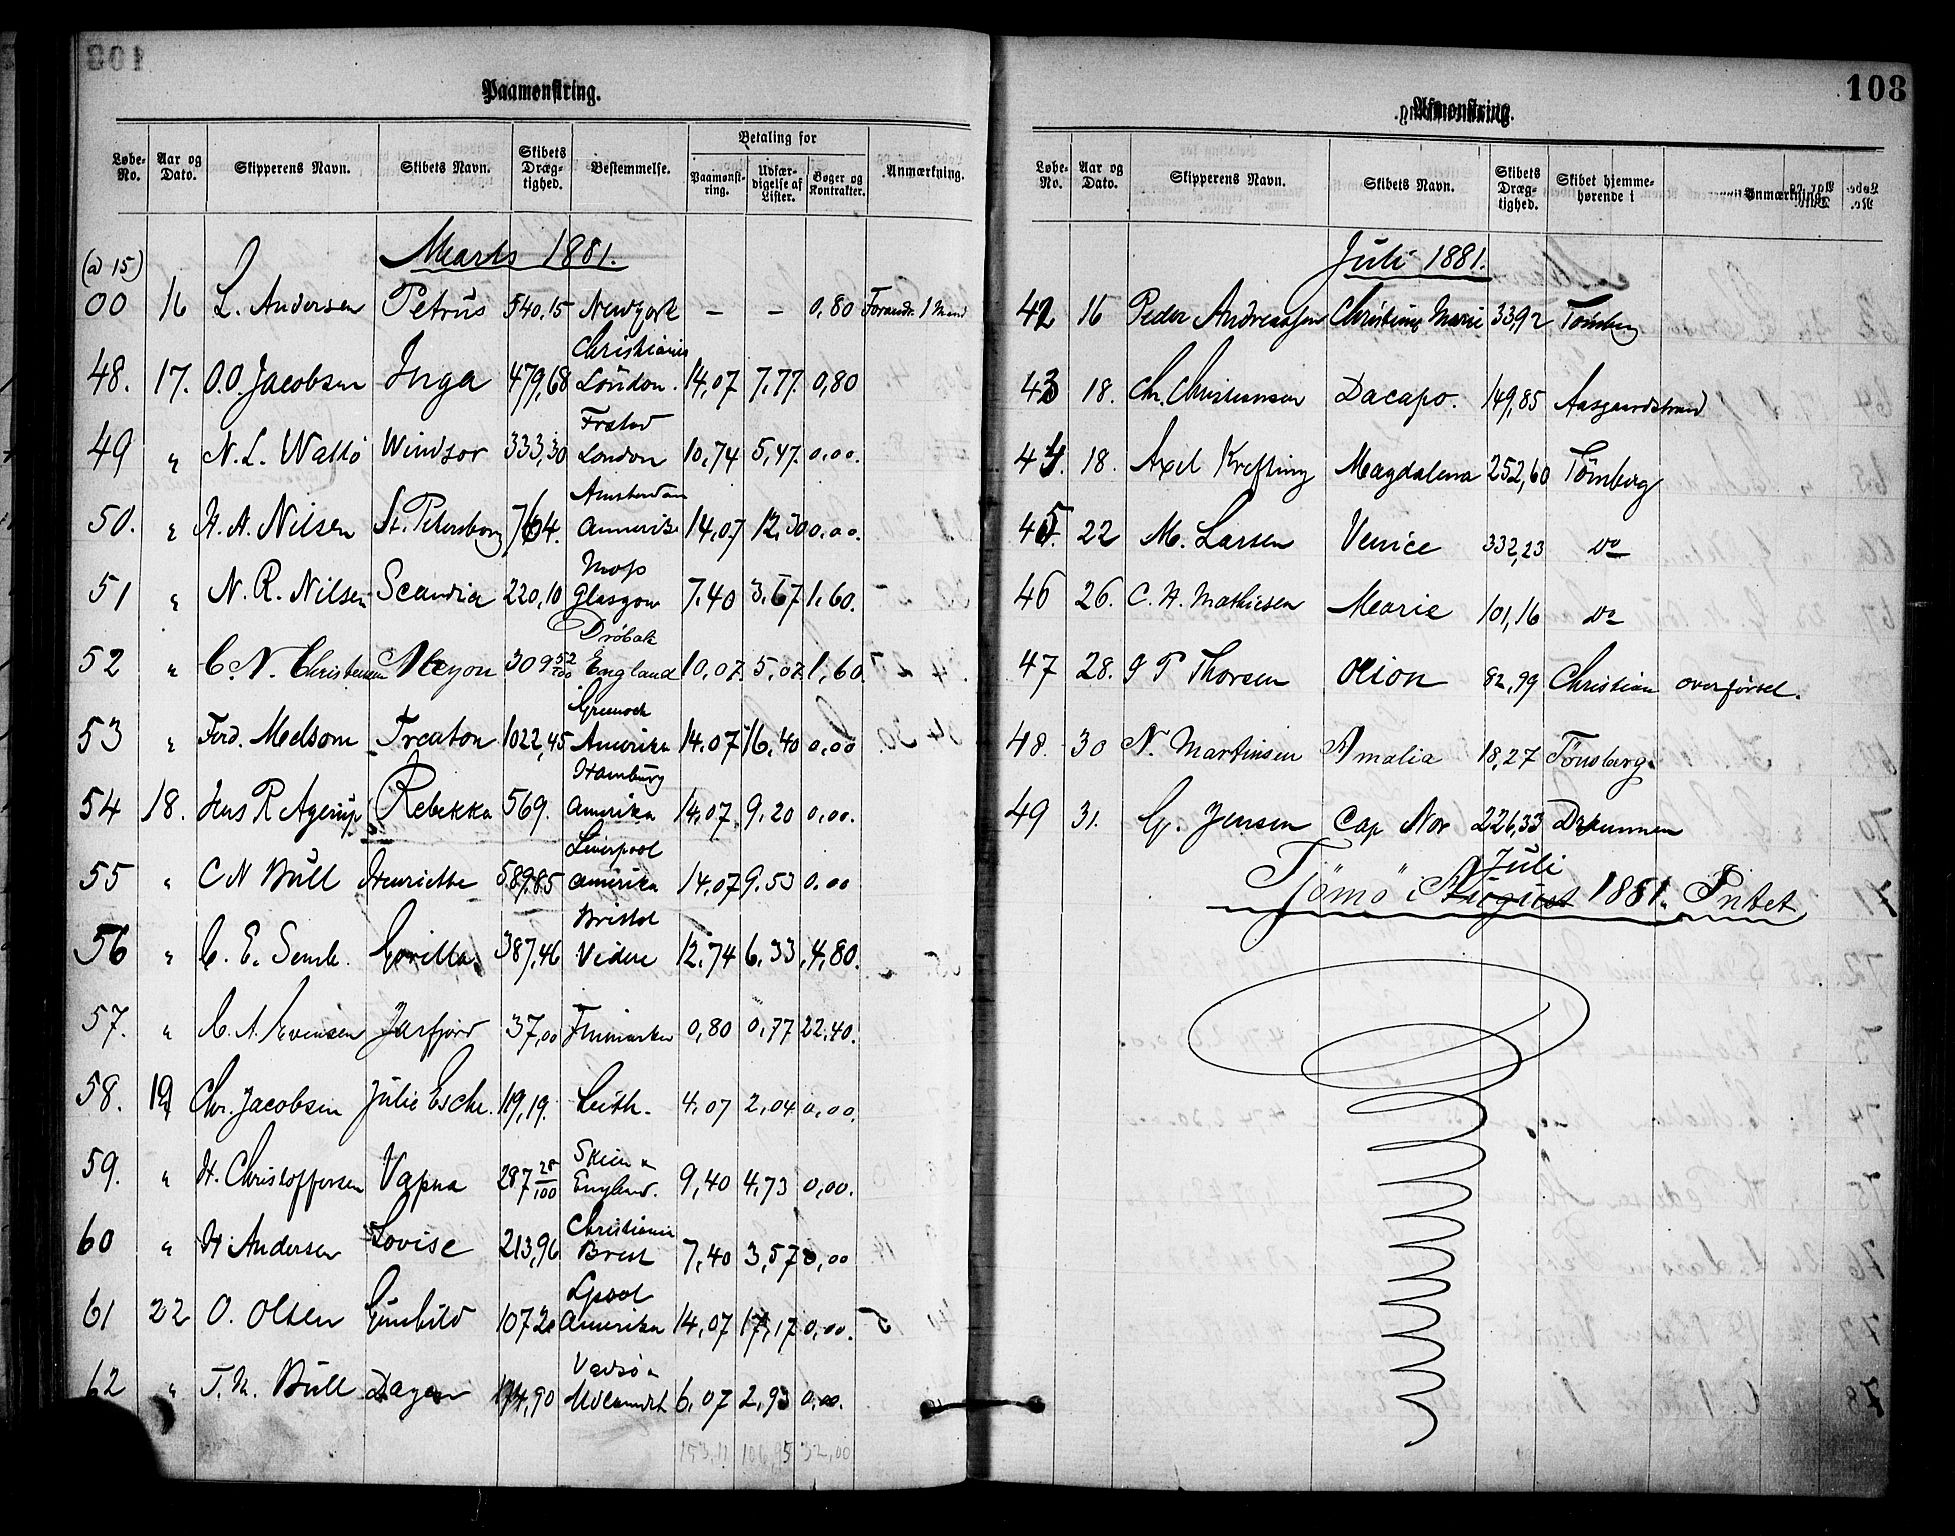 Paamønstring.
Løbe-No. Aar og Dato. Skipperens Navn. Skibets Navn. Skibets Dræg-tighed. Bestemmelse. Betaling for Paamønst-ring. Udfær-digelse af Lister. Bøger og Kontrakter. Anmærkning.
Marts 1881.
(a 15)
00 16 L. Andersen Petrus 540,15 Newyork — — 0,80 Forandr. 1 Mand
Christiania
48. 17. O.O. Jacobsen Inga 479,68 London. 14,07 7,77. 0,80
Frstad
49 " N. L. Wallø Windsor 333,30 London 10,74 5,47. 0,00.
Amsterdam
50. " H. A. Nilsen St. Petersborg 764. Amerika 14,07 12,30 0,00.
Moss
51 " N. R. Nilsen Scandia 220,10 Glasgow 7,40 3,67 1,60.
Drøbak
52 " C. N. Christensen Alcyon 309 52/100 England 10,07. 5,07. 1,60.
Greenock
53 " Ferd. Melsom Treaton 1022,45 Amerika 14,07 16,40 0,00
Hamburg
54 18. Jens R Agerup Rebekka 569. Amerika 14,07. 9,20 0,00.
Liverpool
55 " C N Bull Henriette 589,85 Amerika 14,07 9.53 0,00
Bristol
56 " C. E. Semb. Gorilla. 387,46 Videre 12,74 6,33 4,80.
57. " C. A. Evensen Jarfjord 37,00 Finmarken 0,80 0,77 22,40.
58. 19 Chr. Jacobsen Julie Esche. 119,19. Leith. 4,07 2,04 0,00.
Skien
59. " H. Christoffersen Vapna 287 28/100 England. 9,40 4,73 0,00.
Christiania
60 " H. Andersen Lovise 213,96 Brest 7,40 3,57 0,00
Lpool
61 22 O. Olsen Gunhild 1072 Amerika 14,07 17,17 0,00.
Vadsø
62 " T. N. Bull Dagen 174,90 6,07 2,93 0,00.
153,11 106,95 32,00
108
Afmønstring.
Løbe-No. Aar og Dato. Skipperens Navn. Skibets Navn. Skibets Dræg-tighed. Skibet hjemme-hørende i Anmærkning.
Juli 1881.
42 16 Peder Andreassen Christine Marie 3392 Tønsberg
43 18. Chr. Christiansen Dacapo. 149,85 Aasgaardstrand
44. 18. Axel Krefting Magdalena 252,60 Tønsberg
45. 22 M. Larsen Venice 332,23 Do
46 26. C. H. Mathiesen Marie 101,16 Do
47 28. J P Thorsen Orion 82,99 Christian overførsel.
48. 30 N. Martinsen Amalia 18,27 Tønsberg
49 31. G. Jensen Cap Nor 226,33 Drammen
Juli
Tjømø i August 1881. Intet